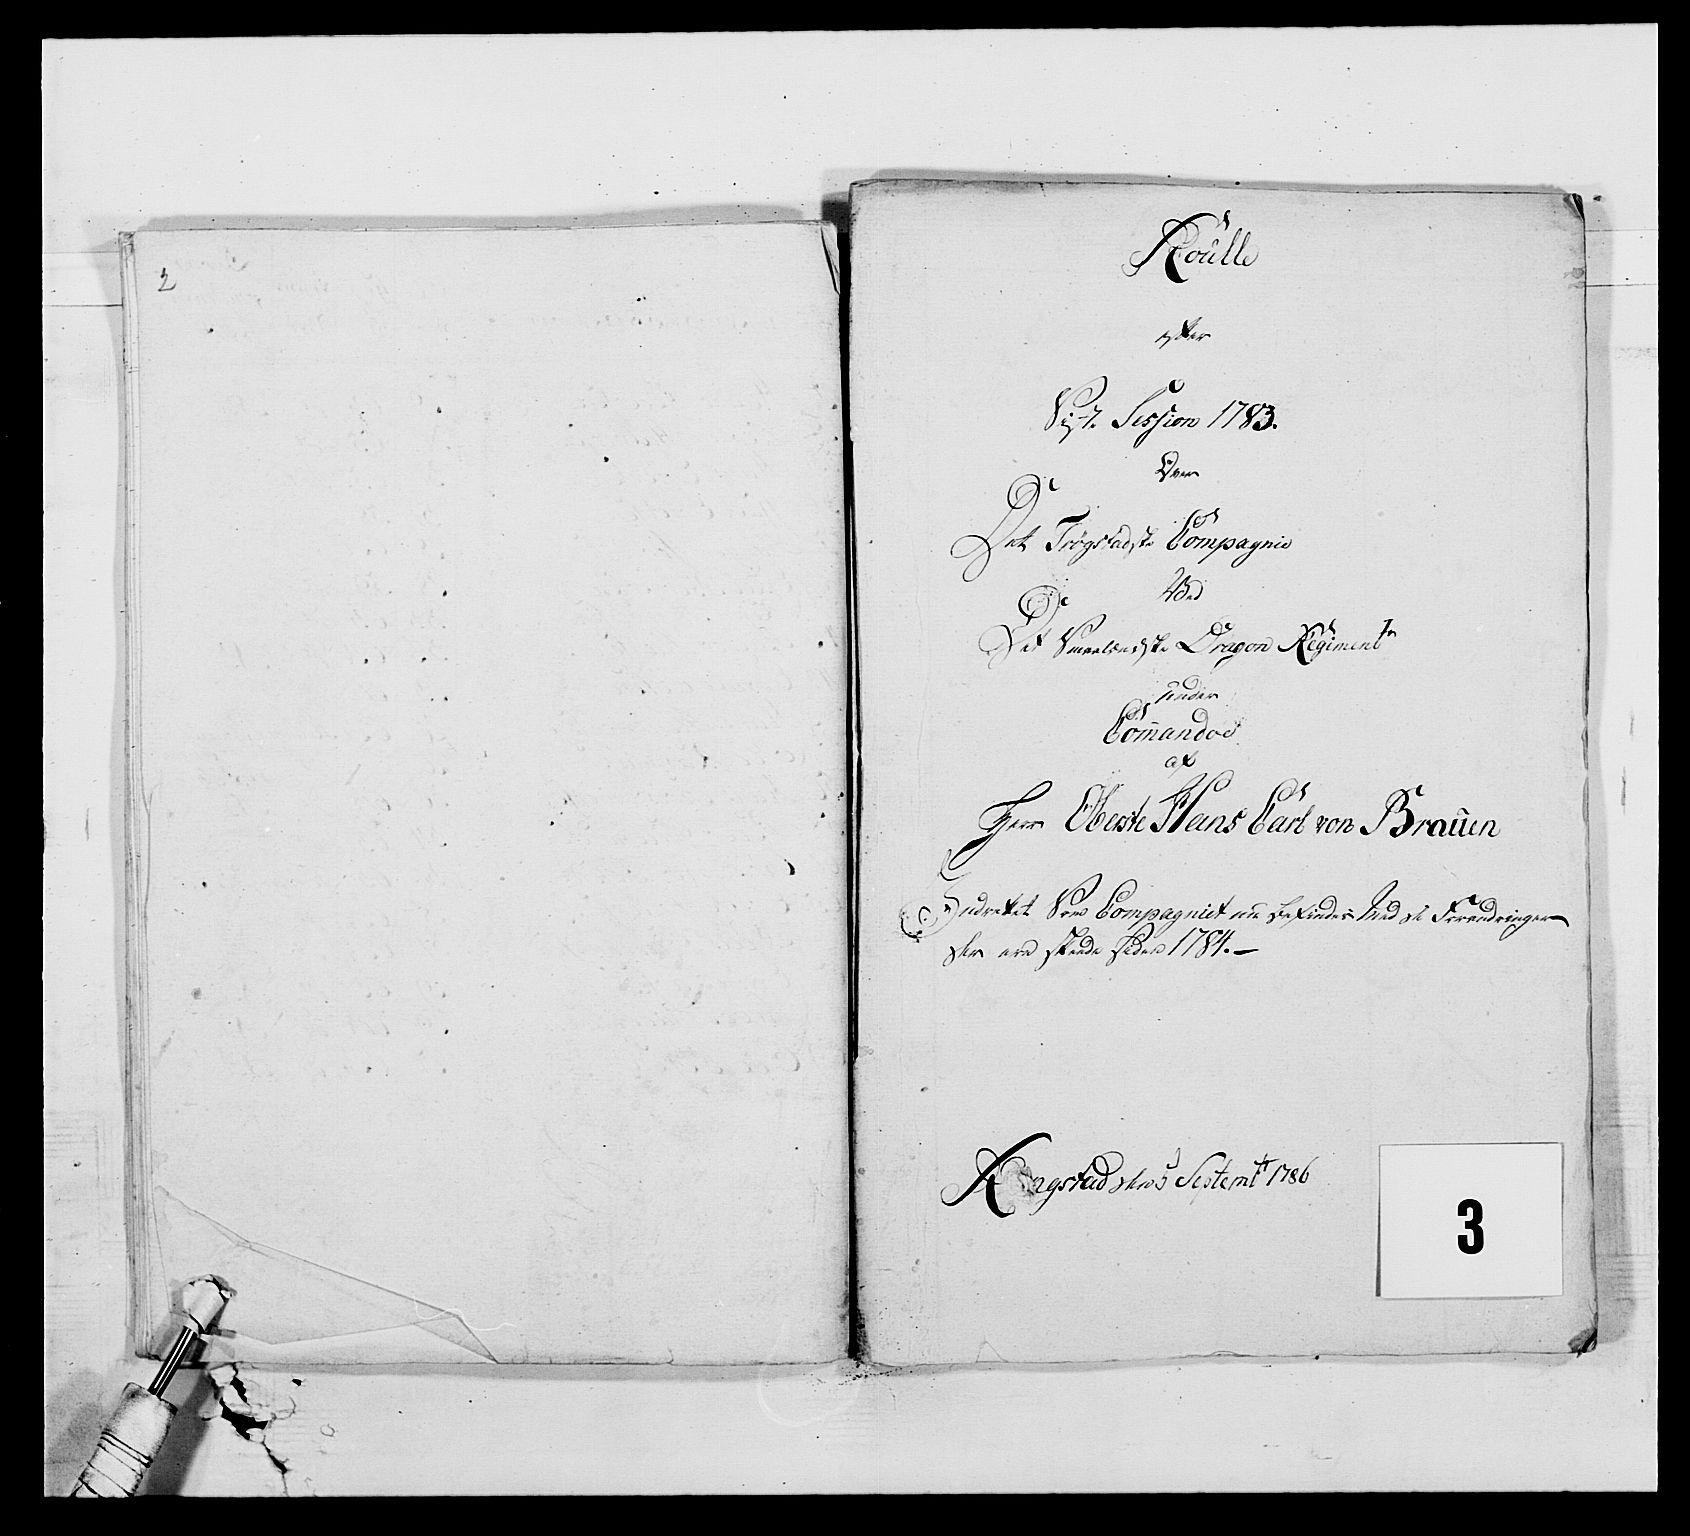 2
Roulle
efter
Sidste Session 1783.
Over
Det Trøgstadske Compagnie
Ved
Det Smaalenske Dragon Regiment
under
Com̄ando
af
Herr Oberste Hans Carl von Brauen
Indrettet Som Compagniet nu befindes Med de Forandringer
der ere skeede siden 1784.-
Ringstad den 5 Septembr 1786
3